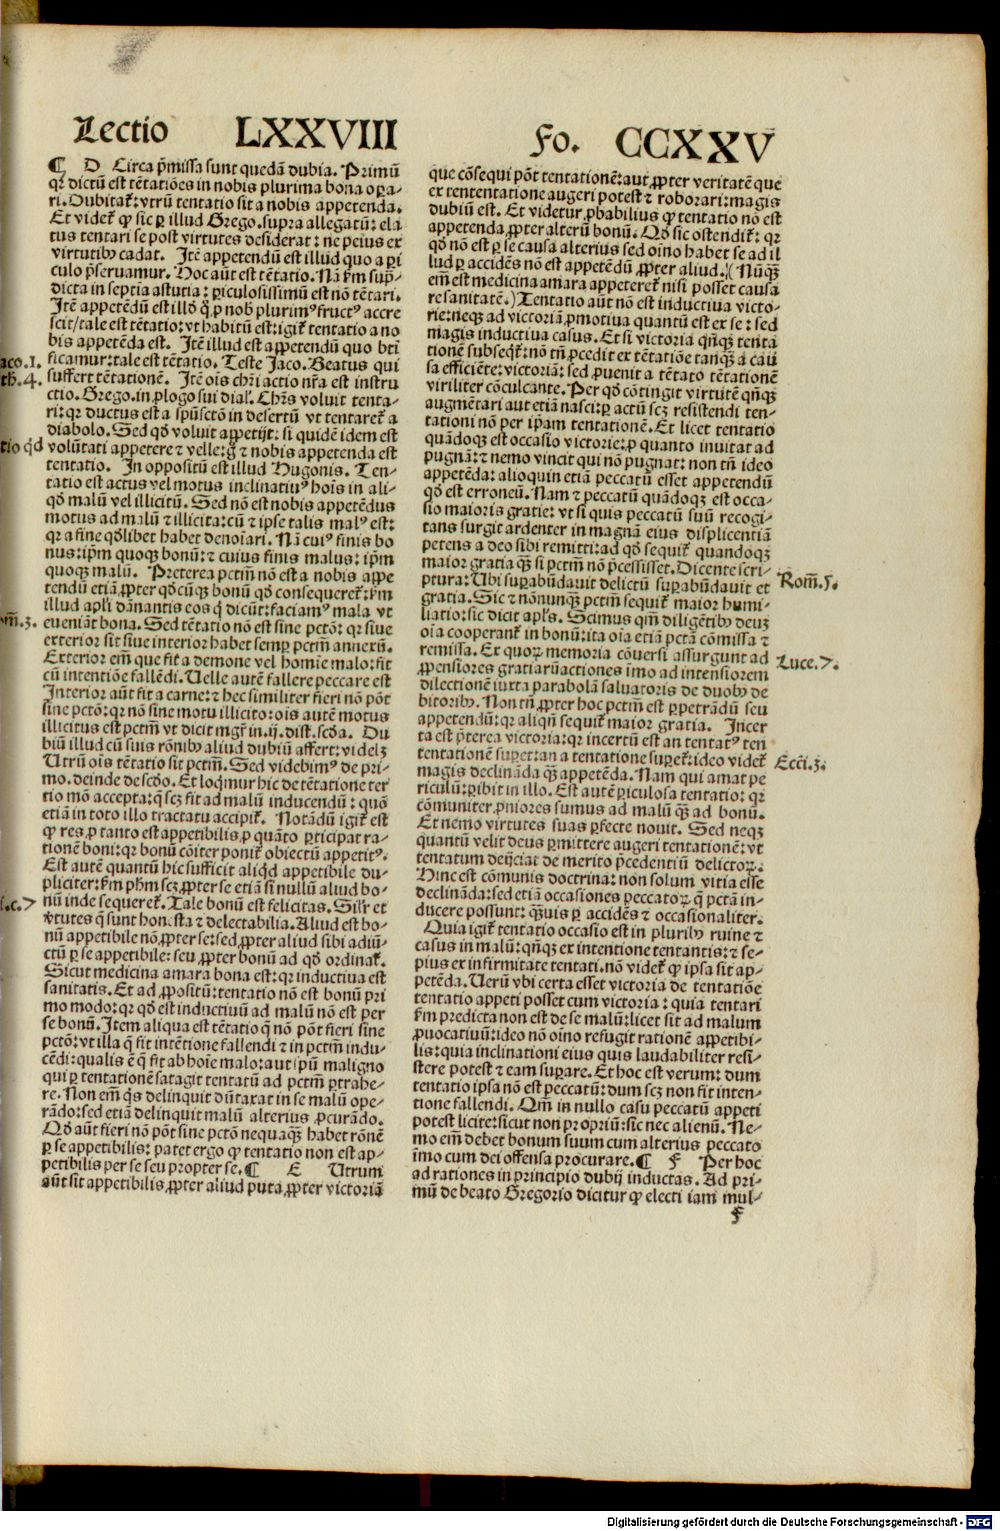 Lectio LXXVIII Fo. CCXXV
¶ D Circa p̄missa sunt quedā dubia. Primū
qꝛ dictū est tētatiōes in nobis plurima bona oꝑa-
ri. Dubitat᷑: vtrū tentatio sit a nobis appetenda.
Et videt᷑ ꝙ sic ꝑ illud Grego. supra allegatū: ela
tus tentari se post virtutes desiderat: ne peius ex
virtutibꝰ cadat. Itē appetendū est illud quo a ꝑi
culo p̄seruamur. Hoc aūt est tētatio. Nā ẜm sup̄-
dicta in septia astutia: ꝑiculosissimū est nō tētari.
Itē appetēdū est illō ꝗ̇ ꝓ nob plurimꝰ fructꝰ accre
scit/tale est tētatio: vt habitū est: igit᷑ tentatio a no
bis appetēda est. Itē illud est appetendū quo bt̄i
ficamur: tale est tētatio. Teste Jaco. Beatus qui
suffert tētationē. Itē oīs ch̄ri actio nr̄a est instru
ctio. Grego. in ꝓlogo sui dial. Ch̄rs voluit tenta-
ri: qꝛ ductus est a spūsctō in desertū vt tentaret᷑ a
diabolo. Sed qd̄ voluit appetijt: si quidē idem est
volūtati appetere ⁊ velle: g̊ ⁊ nobis appetenda est
tentatio. In oppositū est illud Hugonis. Ten-
tatio est actus vel motus inclinatiuꝰ hoīs in ali-
qd̄ malū vel illicitū. Sed nō est nobis appetēdus
motus ad malū ⁊ illicita: cū ⁊ ipse talis malꝰ est:
qꝛ a fine qd̄libet habet denoīari. Nā cuiꝰ finis bo
nus: ip̄m quoqꝫ bonū: ⁊ cuius finis malus: ip̄m
quoqꝫ malū. Preterea pctm̄ nō est a nobis appe
tendū etiā ꝓpter qd̄cūqꝫ bonū qd̄ consequeret᷑: ẜm
illud apl̄i dānantis eos q̇ dicūt: faciamꝰ mala vt
eueniāt bona. Sed tētatio nō est sine pctō: qꝛ siue
exterior sit siue interior habet semꝑ pctm̄ annexū.
Exterior em̄ que fit a demone vel homīe malo: fit
cū intentiōe fallēdi. Uelle autē fallere peccare est
Interior aūt fit a carne: ⁊ hec similiter fieri nō pōt
sine pctō: qꝛ nō sine motu illicito: oīs autē motus
illicitus est pctm̄ vt dicit mgr̄ in .ij. dist. scđa. Du
biū illud cū suis rōnibꝰ aliud dubiū affert: videlꝫ
Utrū oīs tētatio sit pctm̄. Sed videbimꝰ de pri-
mo. deinde de scđo. Et loq̄mur hic de tētatione ter
tio mō accepta: q̄ scꝫ fit ad malū inducendū: quō
etiā in toto illo tractatu accipit᷑. Notādū igit᷑ est
ꝙ res ꝓ tanto est appetibilis ꝓ quāto ꝑticipat ra-
tionē boni: qꝛ bonū cōiter ponit᷑ obiectū appetitꝰ.
Est autē quantū hic sufficit aliqd̄ appetibile du-
pliciter: ẜm phm̄ scꝫ ꝓpter se etiā si nullū aliud bo-
nū inde sequeret᷑. Tale bonū est felicitas. Silr̄ et
v̄tutes q̄ sunt honesta ⁊ delectabilia. Aliud est bo-
nū appetibile nō ꝓpter se: sed ꝓpter aliud sibi adiū-
ctū ꝑ se appetibile: seu ꝓpter bonū ad qd̄ ordinat᷑.
Sicut medicina amara bona est: qꝛ inductiua est
sanitatis. Et ad ꝓpositū: tentatio nō est bonū pri
mo modo: qꝛ qd̄ est inductiuū ad malū nō est per
se bonū. Item aliqua est tētatio q̄ nō pōt fieri sine
pctō: vt illa q̄ fit intētione fallendi ⁊ in pctm̄ indu-
cēdi: qualis ē q̄ fit ab hoīe malo: aut ip̄m maligno
qui ꝑ tentationē satagit tentatū ad pctm̄ ꝑtrahe-
re. Non em̄ q̄s delinquit dūtaxat in se malū ope-
rādo: sed etiā delinquit malū alterius ꝓcurādo.
Qd̄ aūt fieri nō pōt sine pctō nequaꝗ̄ habet rōnē
ꝑ se appetibilis: patet ergo ꝙ tentatio non est ap-
petibilis per se seu propter se. ¶ E Utrum
aūt sit appetibilis ꝓpter aliud puta ꝓpter victoriā
que cōsequi pōt tentationē: aut ꝓpter veritatē que
ex tententatione augeri potest ⁊ roborari: magis
dubiū est. Et videtur ꝓbabilius ꝙ tentatio nō est
appetenda ꝓpter alterū bonū. Qd̄ sic ostendit᷑: qꝛ
qd̄ nō est ꝑ se causa alterius sed oīno habet se ad il
lud ꝑ accidēs nō est appetēdū ꝓpter aliud. (Nūꝗ̄
em̄ est medicina amara appeteret᷑ nisi posset causa
re sanitatē.) Tentatio aūt nō est inductiua victo-
rie: neqꝫ ad victoriā ꝓmotiua quantū est ex se: sed
magis inductiua casus. Et si victoria qn̄qꝫ tenta
tionē subseqt᷑: nō tn̄ ꝓcedit ex tētatiōe tanꝗ̄ a cau
sa efficiēte: victoriā: sed ꝓuenit a tētato tētationē
viriliter cōculcante. Per qd̄ cōtingit virtutē qn̄qꝫ
augmētari aut etiā nasci: ꝑ actū scꝫ resistendi ten-
tationi nō per ip̄am tentationē. Et licet tentatio
quādoqꝫ est occasio victorie: ꝓ quanto inuitat ad
pugnā: ⁊ nemo vincit qui nō pugnat: non tn̄ ideo
appetēda: alioquin etiā peccatū esset appetendū
qd̄ est erroneū. Nam ⁊ peccatū quādoqꝫ est occa-
sio maioris gratie: vt si quis peccatū suū recogi-
tans surgit ardenter in magnā eius displicentiā
petens a deo sibi remitti: ad qd̄ sequit᷑ quandoqꝫ
maior gratia ꝗ̄ si pctm̄ nō p̄cessisset. Dicente scri-
ptura: Ubi suꝑabūdauit delictū suꝑabūdauit et
gratia. Sic ⁊ nōnunꝗ̄ pctm̄ sequit᷑ maior humi-
liatio: sic dicit apl̄s. Scimus qm̄ diligētibꝰ deuꝫ
oīa cooperant᷑ in bonū: ita oīa etiā pctā cōmissa ⁊
remissa. Ex quoꝝ memoria cōuersi assurgunt ad
ꝓpensiores gratiarūactiones imo ad intensiorem
dilectionē iuxta parabolā saluatoris de duobꝰ de
bitoribꝰ. Non tn̄ ꝓpter hoc pctm̄ est ꝑpetrādū seu
appetendū: qꝛ aliqn̄ sequit᷑ maior gratia. Incer
ta est p̄terea victoria: qꝛ incertū est an tentatꝰ ten
tentationē superet: an a tentatione suꝑet᷑: ideo videt᷑
magis declināda ꝗ̄ appetēda. Nam qui amat pe
riculū: ꝑibit in illo. Est autē ꝑiculosa tentatio: qꝛ
cōmuniter ꝓniores sumus ad malū ꝗ̄ ad bonū.
Et nemo virtutes suas ꝑfecte nouit. Sed neqꝫ
quantū velit deus ꝑmittere augeri tentationē: vt
tentatum deijciat de merito p̄cedentiū delictoꝝ.
Hinc est cōmunis doctrina: non solum vitia esse
declināda: sed etiā occasiones peccatoꝝ q̄ pctā in-
ducere possunt: ꝗ̄uis ꝑ accidēs ⁊ occasionaliter.
Quia igit᷑ tentatio occasio est in pluribꝰ ruine ⁊
casus in malū: qn̄qꝫ ex intentione tentantis: ⁊ se-
pius ex infirmitate tentati. nō videt᷑ ꝙ ipsa sit ap-
petēda. Uerū vbi certa esset victoria de tentatiōe
tentatio appeti posset cum victoria: quia tentari
ẜm predicta non est de se malū: licet sit ad malum
ꝓuocatiuū: ideo nō oīno refugit rationē appetibi-
lis: quia inclinationi eius quis laudabiliter resi-
stere potest ⁊ eam suꝑare. Et hoc est verum: dum
tentatio ipsa nō est peccatū: dum scꝫ non fit inten-
tione fallendi. Qm̄ in nullo casu peccatū appeti
potest licite: sicut non propriū: sic nec alienū. Ne-
mo em̄ debet bonum suum cum alterius peccato
īmo cum dei offensa procurare. ¶ F Per hoc
ad rationes in principio dubij inductas. Ad pri-
mū de beato Gregorio dicitur ꝙ electi iam mul-
f
aco. 1.
th. 4.
tio qd̄
m̄. 3.
i. c. 7
Rom̄. 5.
Luce. 7.
Ecci. 3.
Digitalisierung gefördert durch die Deutsche Forschungsgemeinschaft - DFG